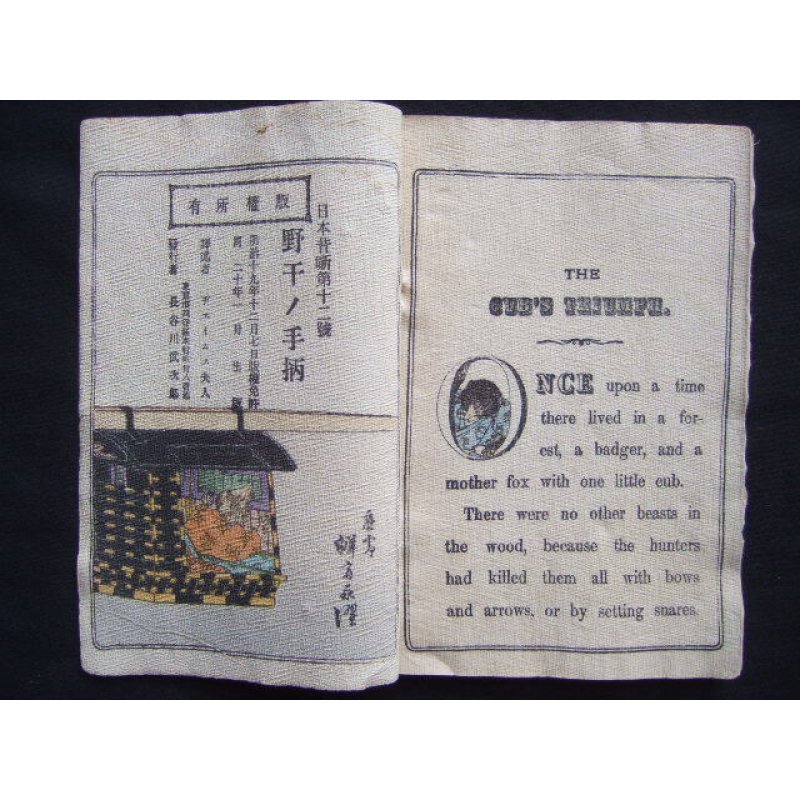 日本昔噺第十二號
野干ノ手柄
版權所有
明治十九年十二月七日版權免許
同二十年 月出版
譯述者 ヂエイムス夫人
發行者 長谷川武次郎
THE
CUB'S TRIUMPH.
ONCE upon a time
there lived in a for-
est, a badger, and a
mother fox with one little cub.
There were no other beasts in
the wood, because the hunters
had killed them all with bows
and arrows, or by setting snares.